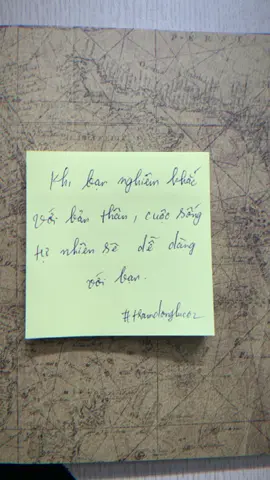 Khi bạn nghiêm khắc
với bản thân, cuộc sống
tự nhiên sẽ dễ dàng
với bạn.